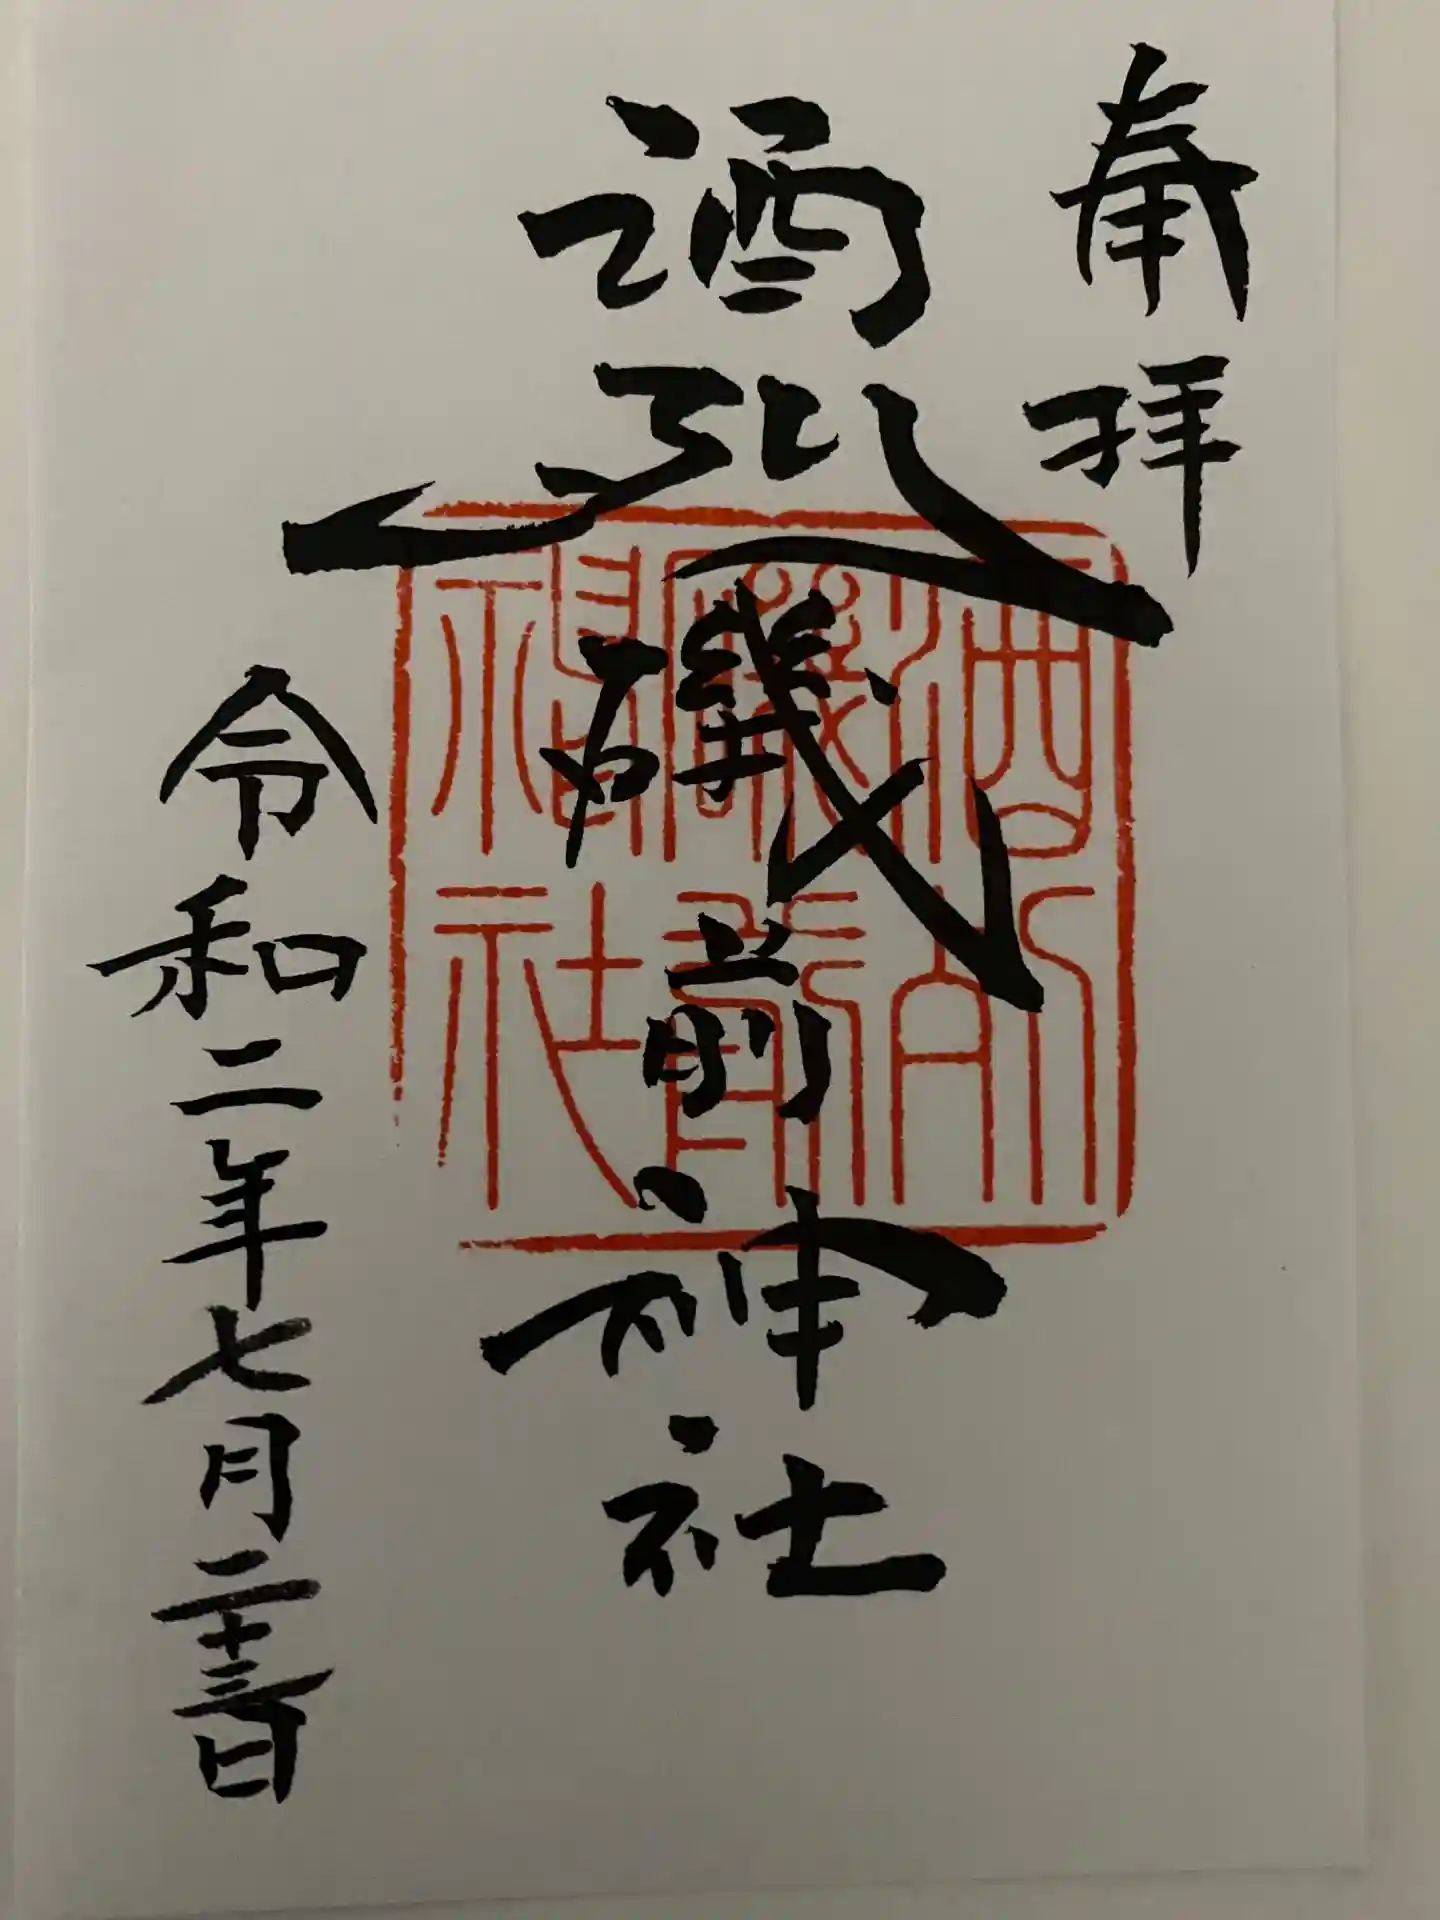 奉拝
酒列磯前神社
令和二年七月二十三日
酒列
磯前
神社